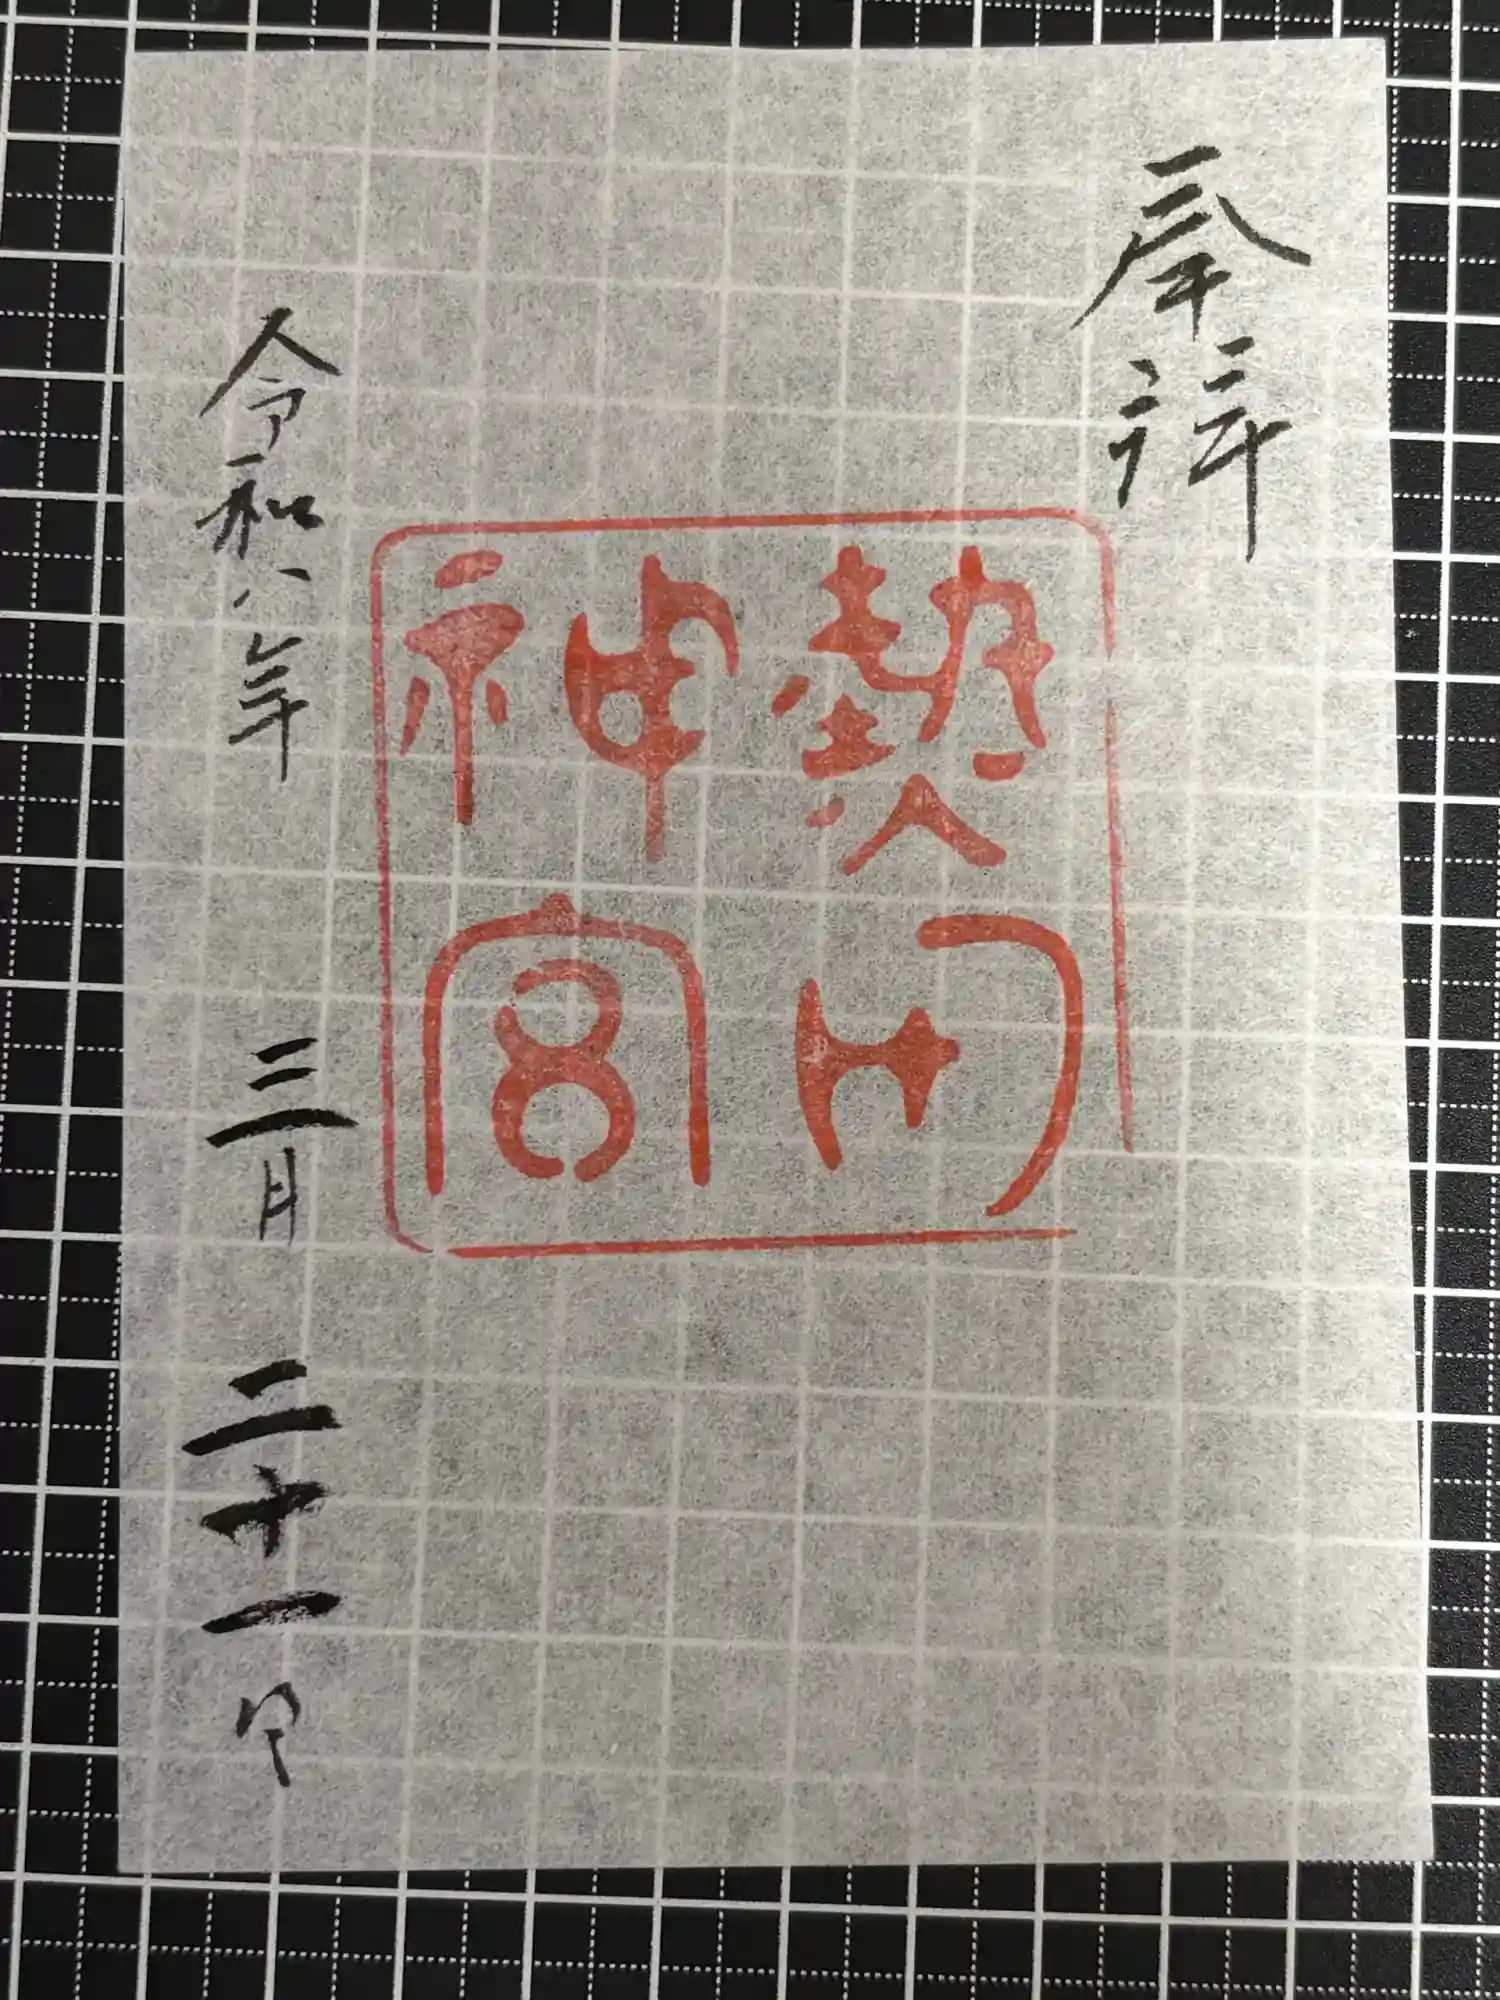 奉拝
熱田
神宮
令和八年 三月 二十一日